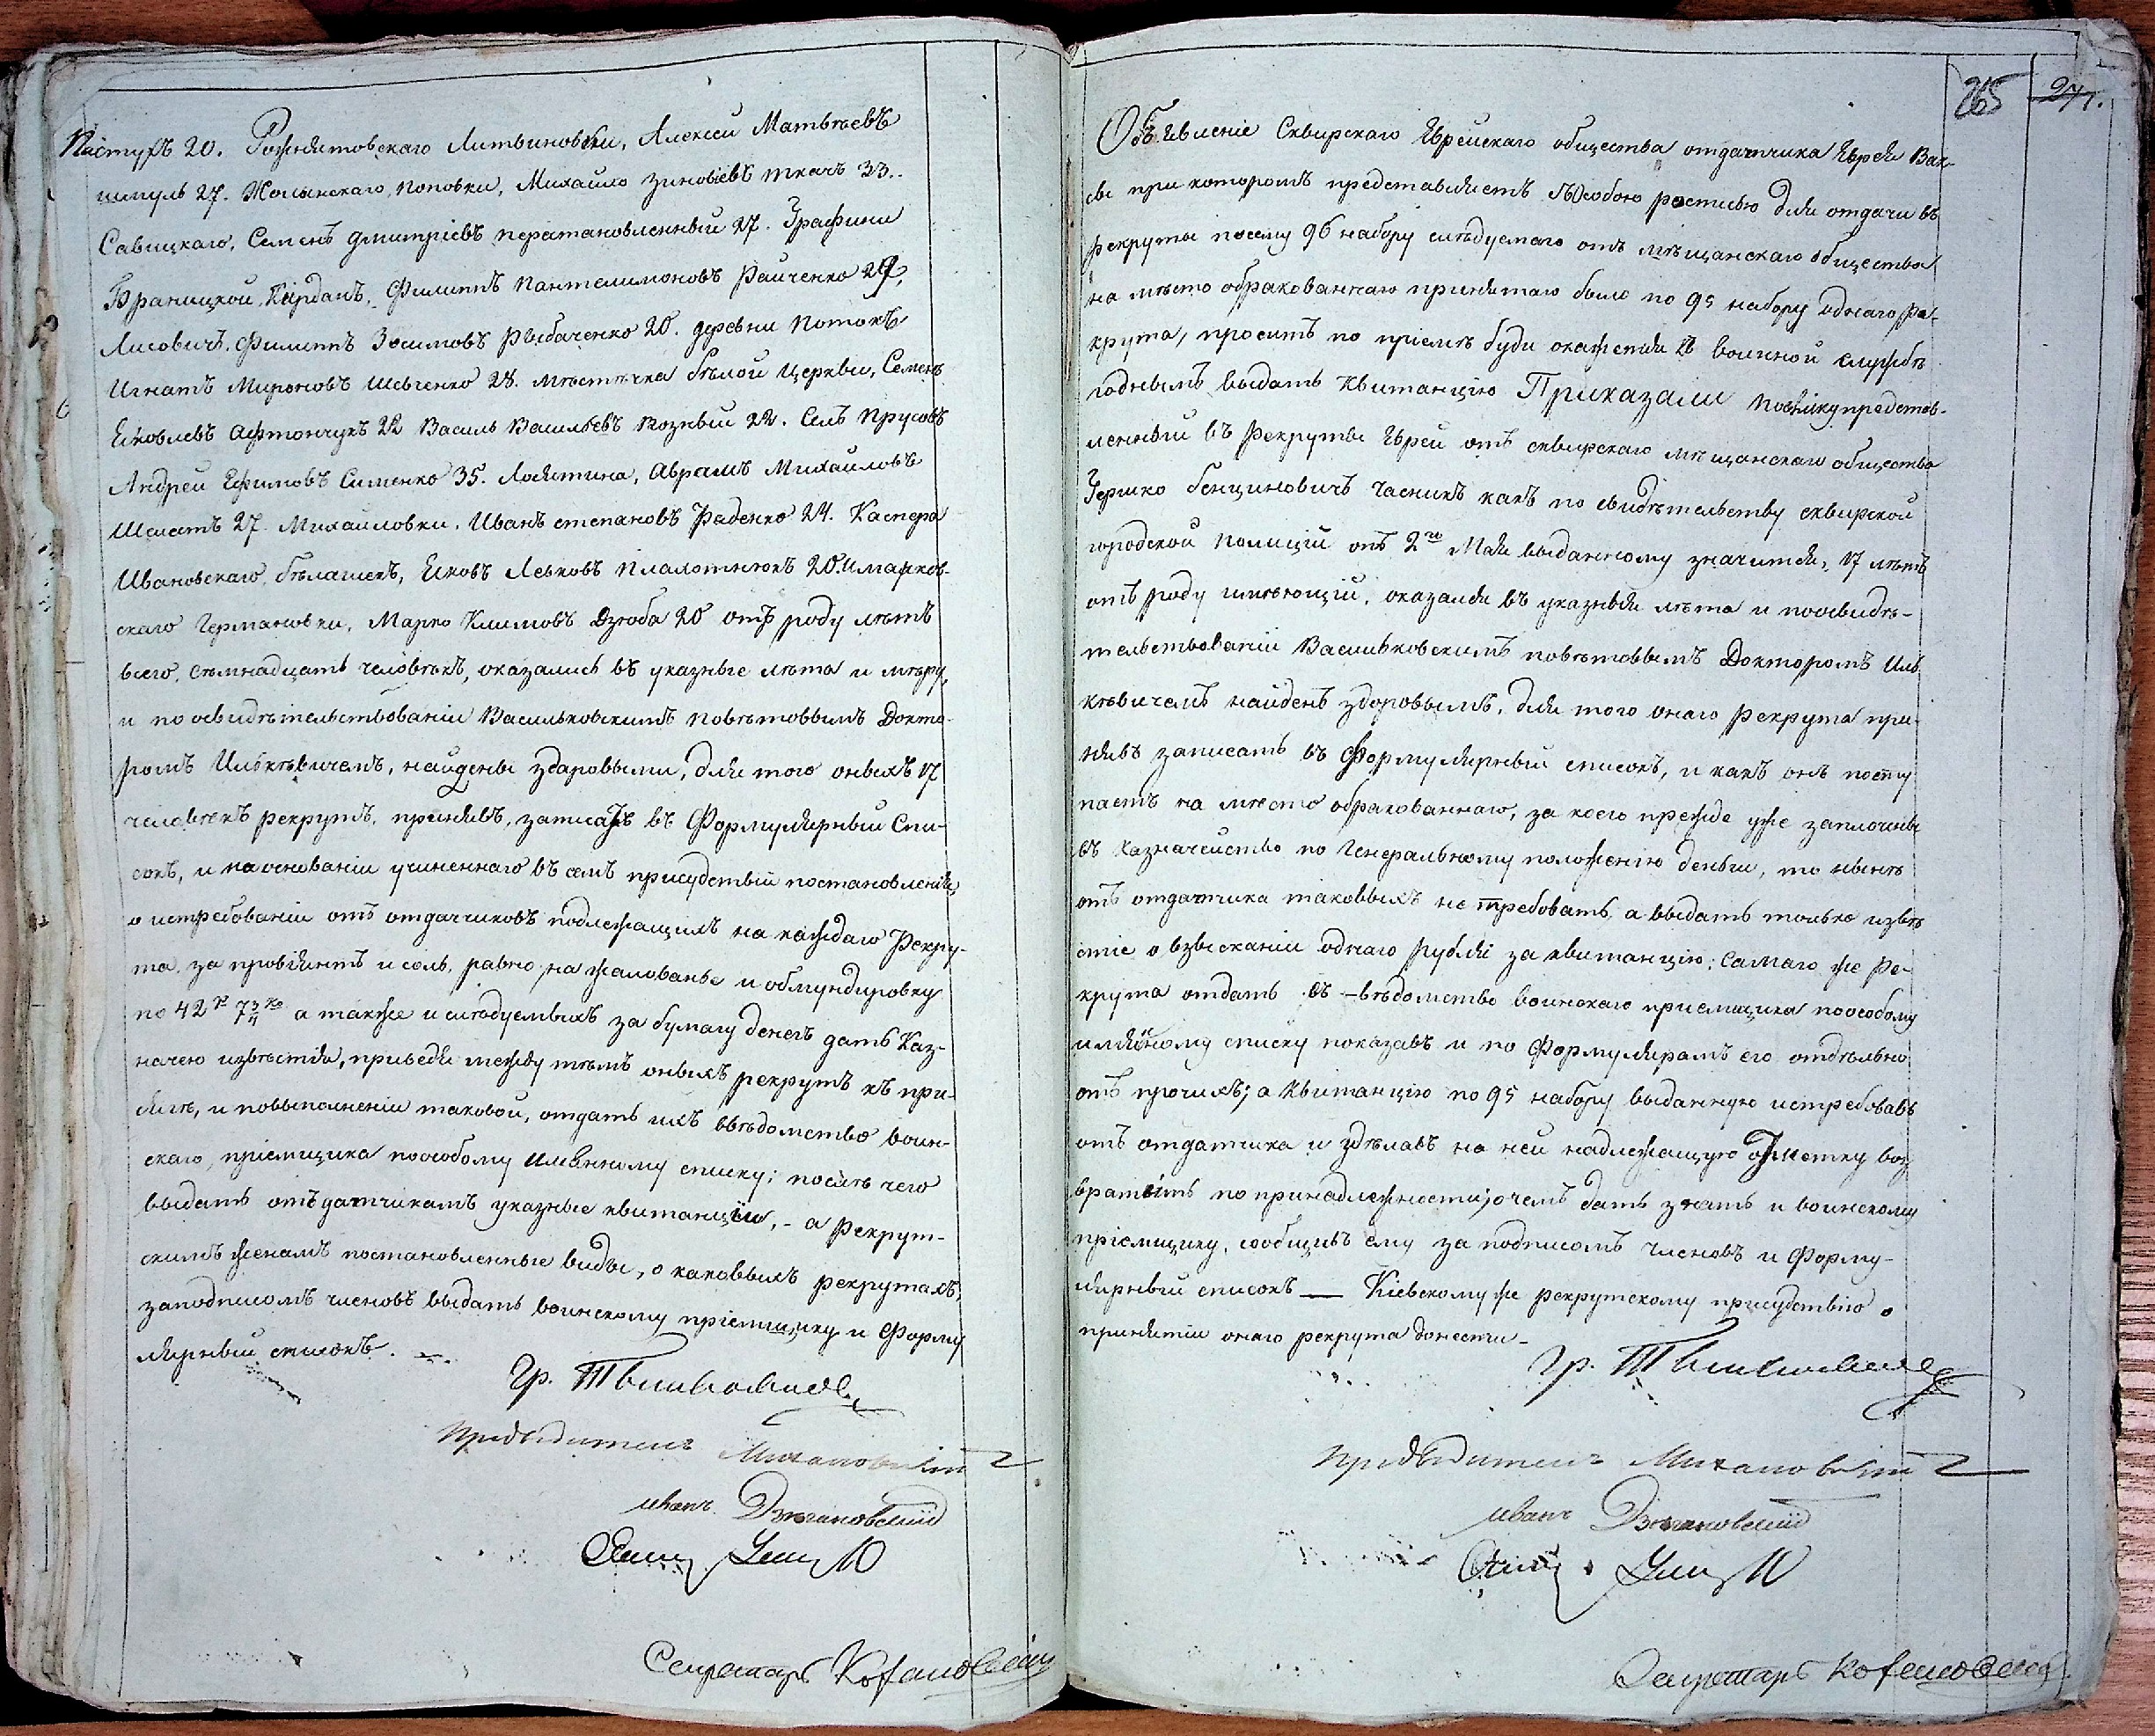 Пастухъ 20. Рожнятовскаго Литвиновки, Алексей Матвѣевъ
шпуль 27. Жолынскаго, Поповки, Михайло Зиновіевъ ткачъ 23..
Савицкаго, Семенъ Дмитріевъ перстановленный 27. Графини
Браницкой, Карданъ, Филиппъ Пантелимоновъ Райченко 27,
Лисовичъ, Филиппъ Зосимовъ Рыбаченко 20. деревни Потокъ
Игнатъ Мироновъ Шевченко 28. мѣстечка бѣлой церкви, Семенъ
Яковлевъ Афтончукъ 22 Василь Васильевъ Козный 22. Селъ Прусовъ
Андрей Ефимовъ Сименко 35. Лосятина, Аврамъ Михайловъ
Шелестъ 27. Михайловки, Иванъ степановъ Раденко 24. Каспера
Ивановскаго, бѣлашекъ, Яковъ Леьковъ Плахотнюкъ 20. и марков-
скаго Германовки, Марко Климовъ Дзюба 20 отъ роду лѣтъ
всего, съмнадцать человѣкъ, оказались въ указные лѣта и мѣру,
и по освидѣтельствованіи Васильковскимъ повѣтовымъ Докто-
ромъ Ильяевичемъ, найдены здаровыми, для того оныхъ 17
человѣкъ рекрутъ, принявъ, записать въ Формулярный Спи-
сокъ, и на основаніи учиненнаго въ семъ присудствіи постановленія,
о истребованіи отъ отдатчиковъ подлежащихъ на каждаго Рекру-
та, за провіянтъ и соль, равно, на жалованье и обмундировку
по 42 р 7¾ ко а также и слѣдуемыхъ за бумагу денегъ дать Каз-
начею извѣстія, приведя между тѣмъ оныхъ рекрутъ къ при-
сягѣ, и повыполненіи таковой, отдать ихъ въ вѣдомство воин-
скаго, пріемщика пособому имянному списку; послѣ чего
выдать отъдатчикамъ указные квитанціи, - а рекрут-
скимъ женамъ постановленные виды, о каковыхъ рекрутахъ,
заподписомъ членовъ выдать воинскому пріемщику и Форму
лярный списокъ.
Гр. Тышкевичъ
Предводитель Михаловскій
иванъ Дзюгановскій
Секретарь Кохановскій
265 271.
Объявленіе Сквирскаго Еврейскаго общества отдатчика Еврея Вак-
сы при которомъ представляетъ съ Особою ростисью для отдачи въ
рекруты посему 96 набору слѣдуемаго отъ мѣщанскаго общества
на мѣсто обракованнаго принятаго было по 95 набору однаго ре-
крута, проситъ по пріемѣ буди окажется въ воинской службѣ
годнымъ выдать квитанцію Приказали поелику представ-
ленный въ рекруты Еврей отъ сквирскаго мѣщанскаго общества
Гершко бенциновичъ Часникъ какъ по свидѣтельству сквирской
городской полиціи отъ 2го Мая выданному значится, 17 лѣтъ
отъ роду имѣющій, оказался въ указныя лѣта и по освидѣ-
тельствованіи Васильковскимъ повѣтовымъ Докторомъ Иль
яевичемъ найденъ здоровымъ, для того онаго рекрута при-
нявъ записать въ Формулярный списокъ, и какъ онъ посту
паетъ на мѣсто обракованнаго, за коего прежде уже заплочены
въ казначейство по Генеральному положенію деньги, то нынѣ
отъ отдатчика таковыхъ не требовать, а выдать только извѣ
стіе о взысканіи однаго рубля за квитанцію; самаго же Ре-
крута отдать въ -вѣдомство воинскаго приемщика поособому
имянному списку показавъ и по Формулярамъ его отдѣльно
отъ прочихъ; а квитанцію по 95 набору выданную истребовавъ
отъ отдатчика и здѣлавъ на ней надлежащую отметку воз
вратить по принадлежности; о чемъ дать знать и воинскому
пріемщику, сообщивъ ему за подписомъ членовъ и Форму-
лярный списокъ — Кіевскому же рекрутскому присудствію о
принятіи онаго рекрута донести -
Гр. Тышкевичъ
Предводитель Михаловскій
иванъ Дзюгановскій
Секретарь Кохановскій